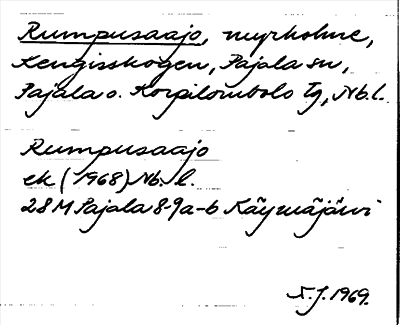 Rumpusaajo, myrholme,
Kengisskogen, Pajala sn,
Pajala o. Korpilombolo tg, Nb.l.
Rumpusaajo
ek (1968) Nb. l.
28M Pajala 8-9a-b Käymäjärvi
N.J. 1969.